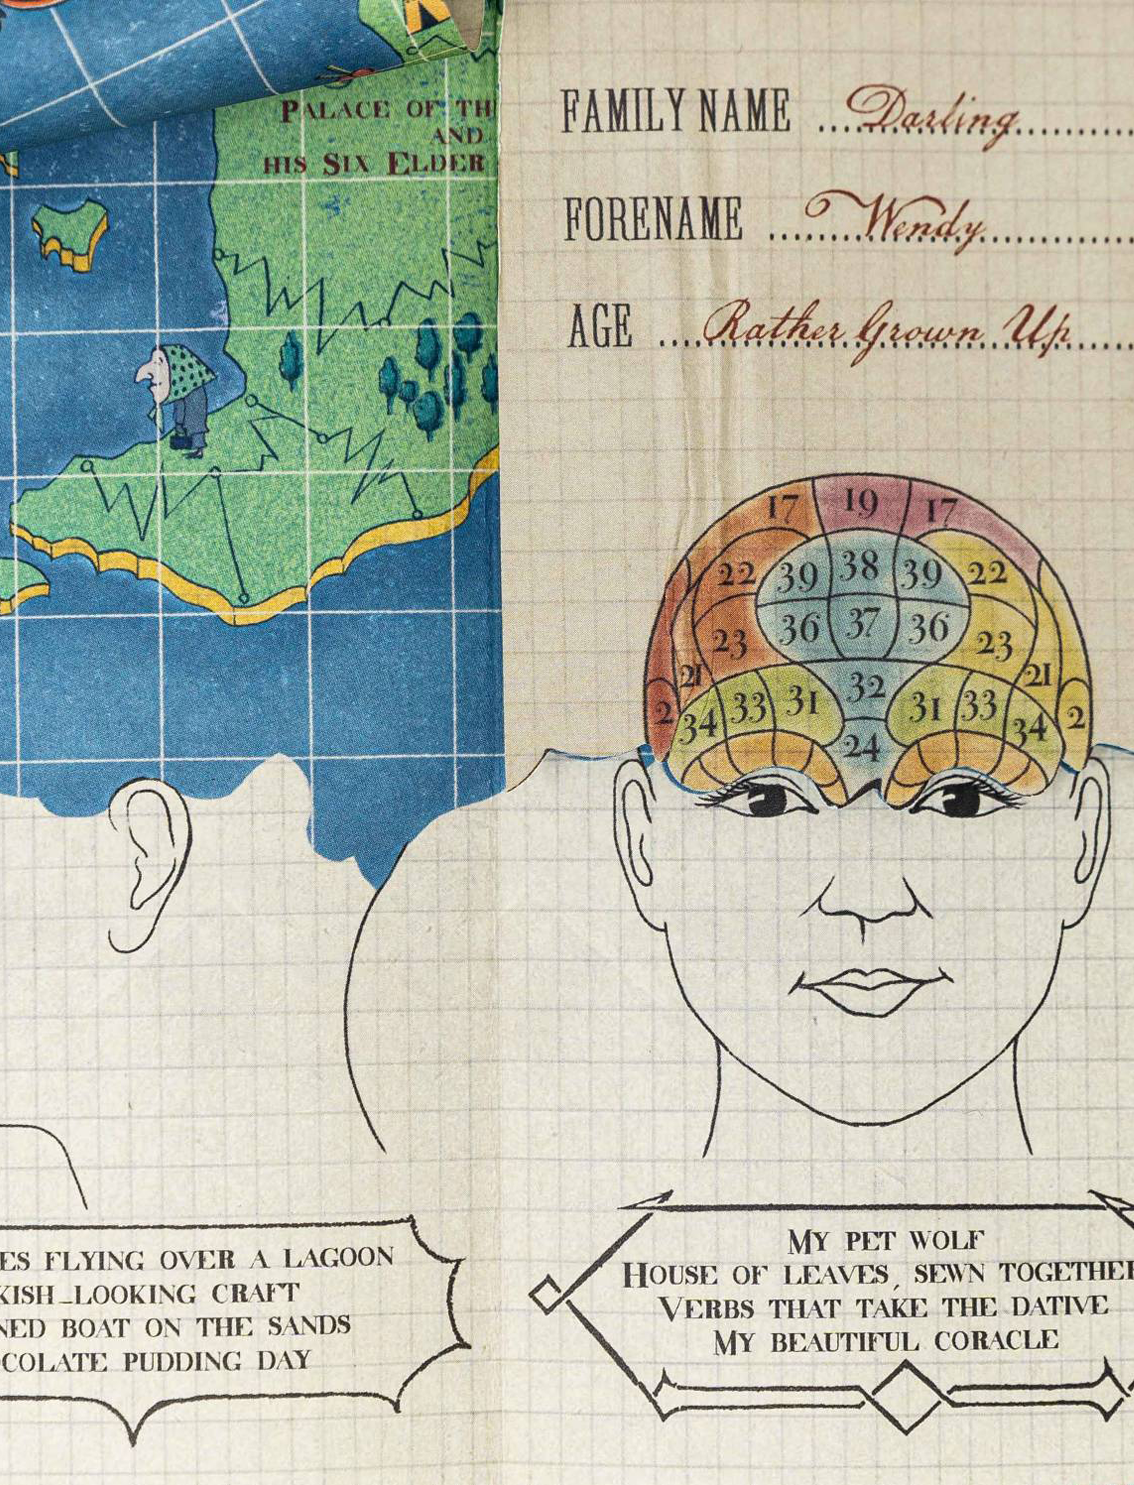 PALACE OF TH
AND
HIS SIX ELDER
FAMILY NAME ....Darling....
FORENAME ....Wendy....
AGE ....Rather Grown Up....
17 19 17
22 39 38 39 22
23 36 37 36 23
21 32 21
2 34 33 31 31 33 34 2
24
ES FLYING OVER A LAGOON
KISH-LOOKING CRAFT
NED BOAT ON THE SANDS
COLATE PUDDING DAY
MY PET WOLF
HOUSE OF LEAVES, SEWN TOGETHER
VERBS THAT TAKE THE DATIVE
MY BEAUTIFUL CORACLE